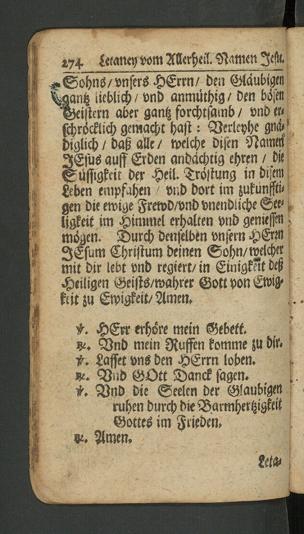 274 Letaney vom Allerheil. Namen Jesu.
Sohns / vnsers HErrn / den Gläubigen
gantz lieblich / vnd anmüthig / den bösen
Geistern aber gantz forchtsamb / vnd er-
schröcklich gemacht hast : Verleyhe gnä-
diglich / daß alle / welche disen Namen
JEsus auff Erden andächtig ehren / die
Süssigkeit der Heil. Tröstung in disem
Leben empfahen / vnd dort im zukunffti-
gen die ewige Frewd / vnd vnendliche See-
ligkeit im Himmel erhalten vnd geniessen
mögen. Durch denselben vnsern HErrn
JEsum Christum deinen Sohn / welcher
mit dir lebt vnd regiert / in Einigkeit deß
Heiligen Geists / wahrer Gott von Ewig-
keit zu Ewigkeit / Amen.
℣. HErr erhöre mein Gebett.
℟. Vnd mein Ruffen komme zu dir.
℣. Lasset vns den HErrn loben.
℟. Vnd GOtt Danck sagen.
℣. Vnd die Seelen der Glaubigen
ruhen durch die Barmhertzigkeit
Gottes im Frieden.
℟. Amen.
Leta-